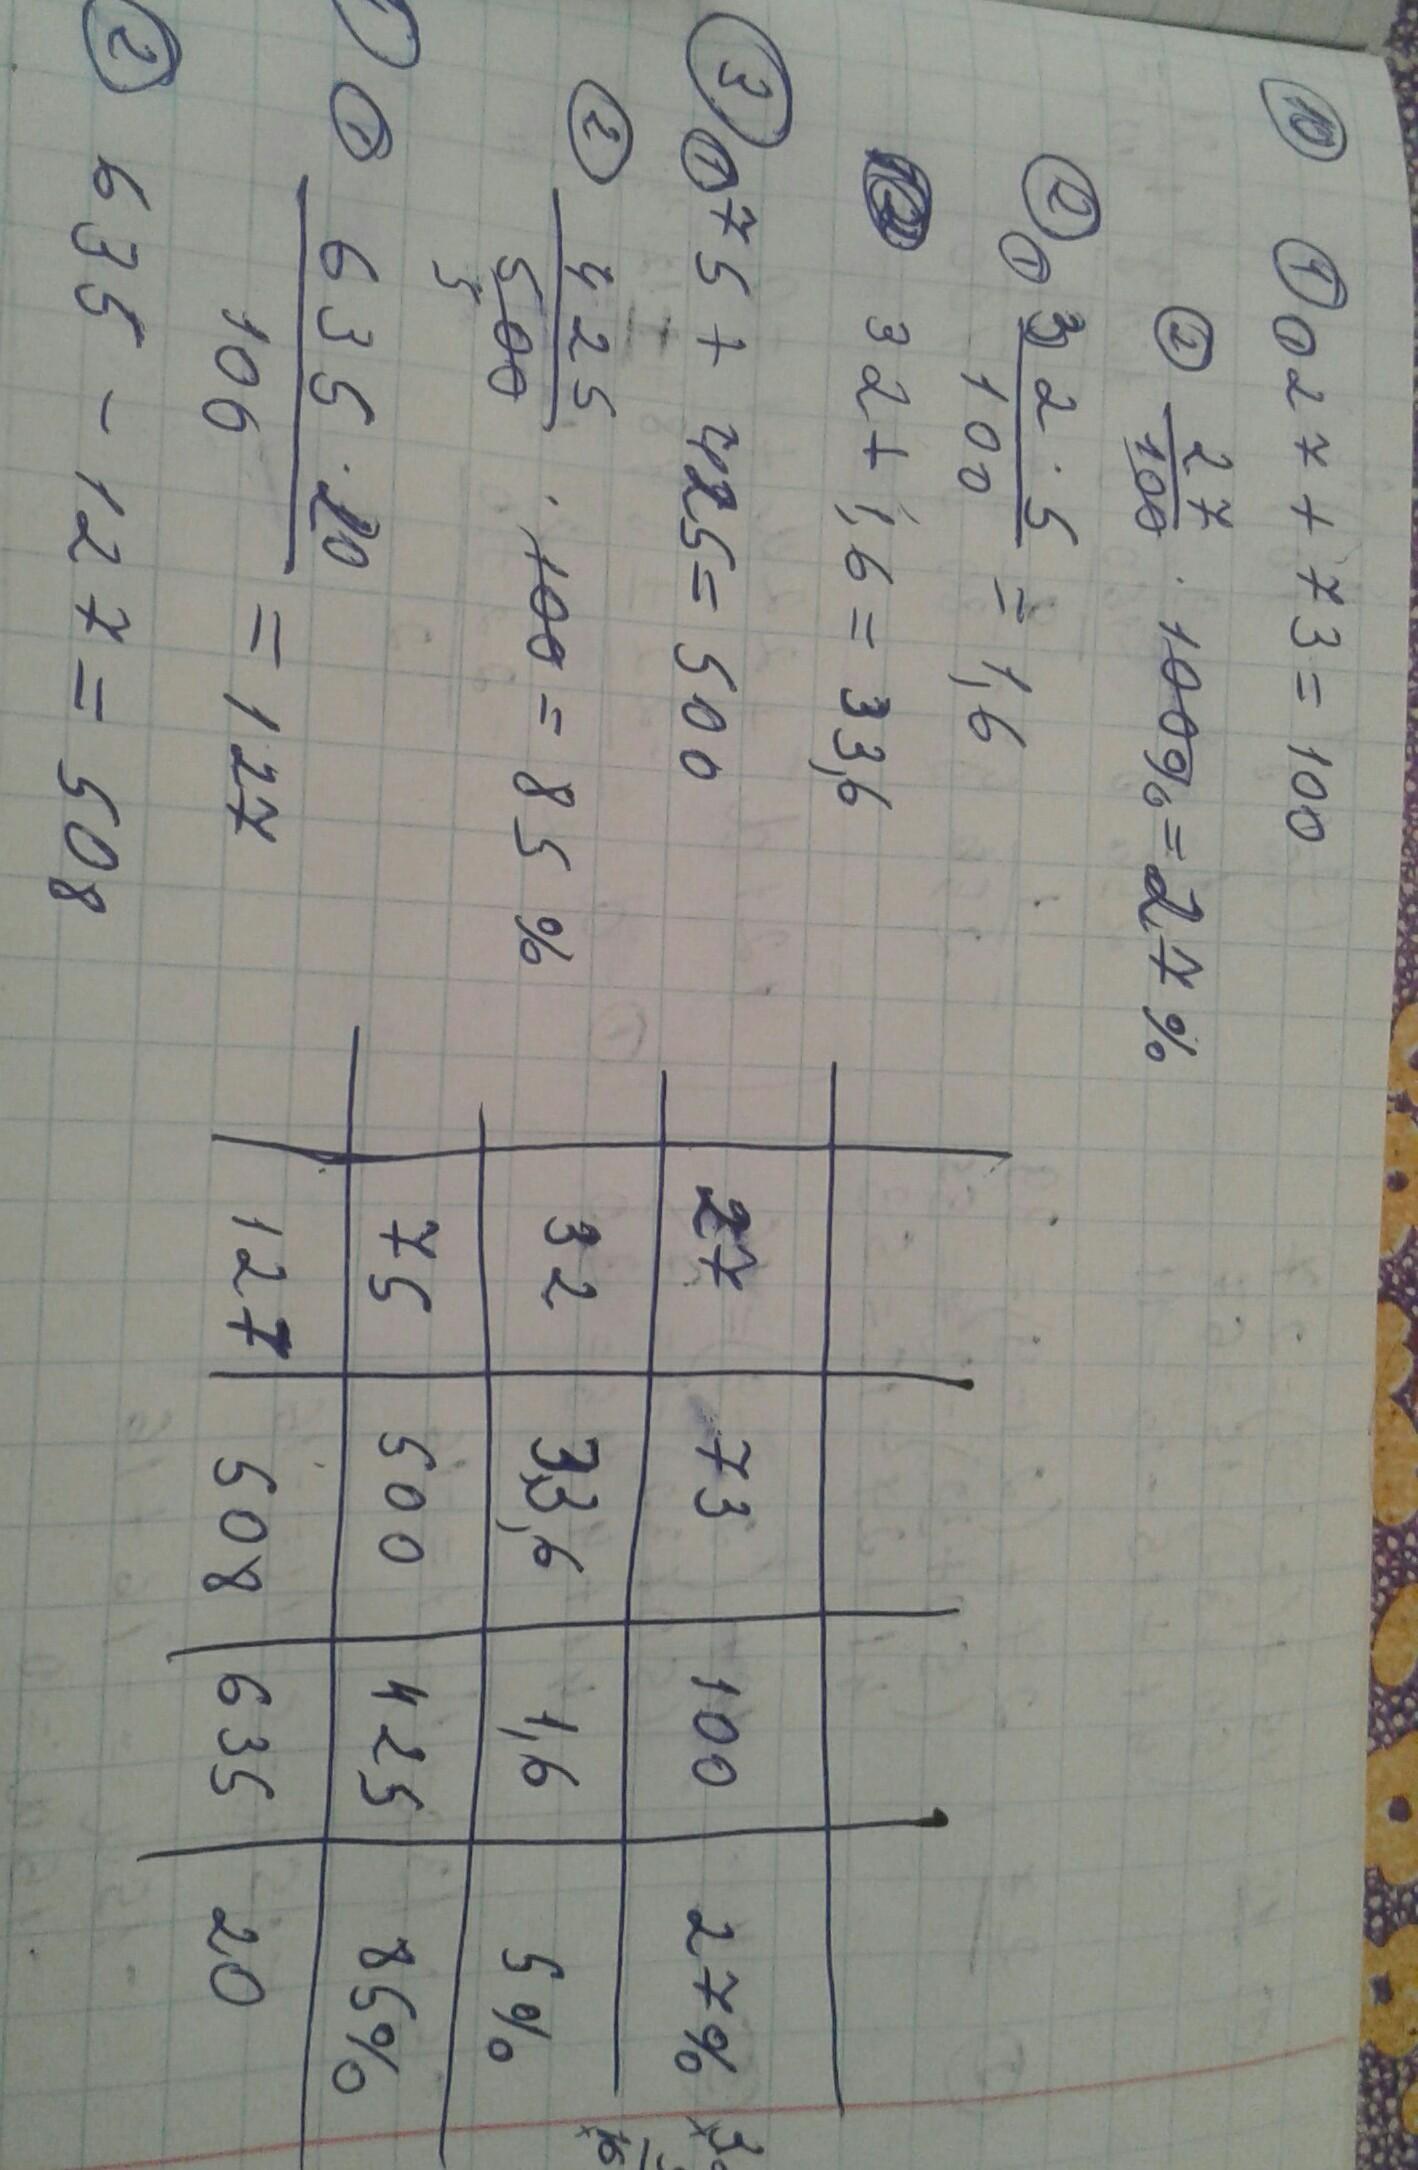 10 1 27 + 73 = 100
2 27/100 · 100% = 27%
2 1 32 · 5 / 100 = 1,6
32 + 1,6 = 33,6
3 1 75 + 425 = 500
2 425/500 · 100 = 85%
5
1 635 · 20 / 100 = 127
2 635 - 127 = 508
27 73 100 27%
32 33,6 1,6 5%
75 500 425 85%
127 508 635 20